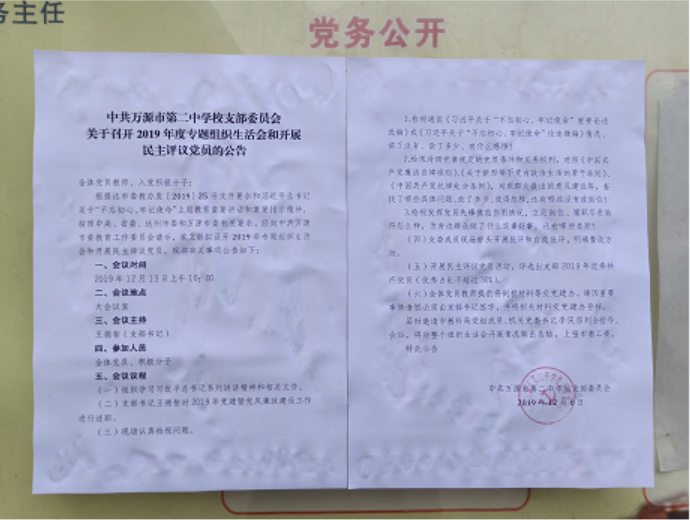 务主任
党务公开
中共万源市第二中学校支部委员会
关于召开 2019 年度专题组织生活会和开展
民主评议党员的公告
全体党员教师、入党积极分子：
根据达市委教办发【2019】25号文件要求和习近平总书记
关于“不忘初心、牢记使命”主题教育重要讲话和重要指示精神，
按照中央、省委、达州市委和万源市委相关要求，经向中共万源
市委教育工作委员会请示，我支部拟召开2019年专题组织生活
会和开展民主评议党员，现将有关事项公告如下：
一、会议时间
2019 年 12 月 13 日上午 10：00
二、会议地点
大会议室
三、会议主持
王德智（支部书记）
四、参加人员
全体党员、积极分子
五、会议议程
（一）组织学习习近平总书记系列讲话精神和相关文件。
（二）支部书记王德智对2019年党建暨党风廉政建设工作
进行述职。
（三）现场认真检视问题。
1.检视通读《习近平关于“不忘初心、牢记使命”重要论述
选编》
读了没有、读了多少、有什么感悟？
2.检视对照党章规定的党员条件和义务权利，对照《中国共
产党廉洁自律准则》《关于新形势下党内政治生活的若干准则》
《中国共产党纪律处分条例》，对照群众提出的意见建议等，查
找了哪些具体问题，改了多少，改得怎样，还有哪些没有改到位？
3.检视发挥党员先锋模范作用情况，立足岗位、履职尽责做
得怎么样，为身边群众做了什么实事好事，还有哪些差距？
（四）支委成员现场带头开展批评和自我批评，明确整改方
向。
（五）开展民主评议党员活动，评选出支部 2019 年优秀共
产党员（优秀占比不超过 30%）。
（六）全体党员教师提前将剖析材料等交党建办，确因重要
事情请假必须由支部书记签字，并将相关材料交党建办审核。
特此公告
中共万源市第二中学校支部委员会
2019 年 12 月 6 日